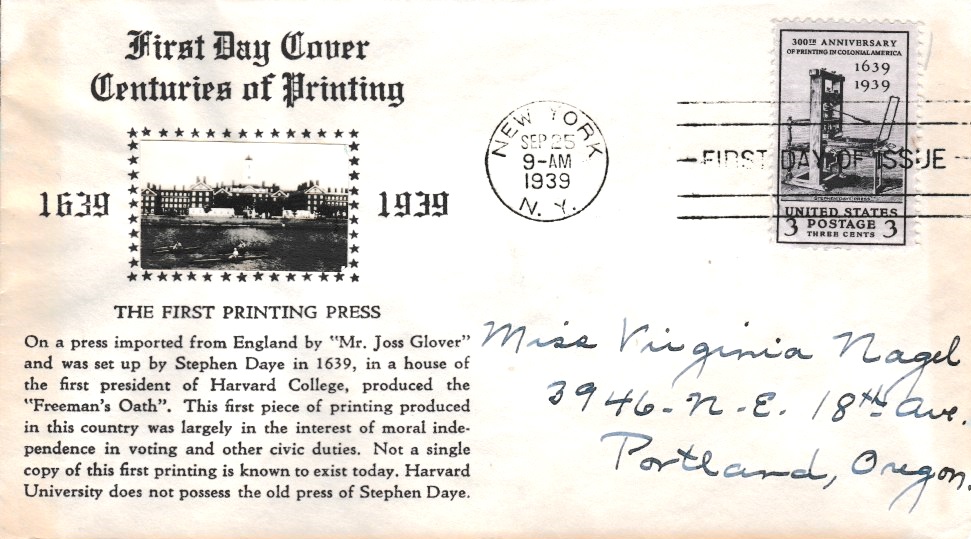 First Day Cover
Centuries of Printing
1639 1939
THE FIRST PRINTING PRESS
On a press imported from England by "Mr. Joss Glover"
and was set up by Stephen Daye in 1639, in a house of
the first president of Harvard College, produced the
"Freeman's Oath". This first piece of printing produced
in this country was largely in the interest of moral inde-
pendence in voting and other civic duties. Not a single
copy of this first printing is known to exist today. Harvard
University does not possess the old press of Stephen Daye.
NEW YORK
SEP 25
9-AM
1939
N. Y.
FIRST DAY OF ISSUE
300TH ANNIVERSARY
OF PRINTING IN COLONIAL AMERICA
1639
1939
UNITED STATES
3 POSTAGE 3
THREE CENTS
Miss Virginia Nagel
3946-N-E. 18th Ave.
Portland, Oregon.